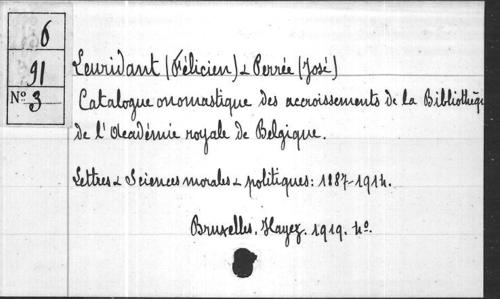 6
91
Nº 3
Leuridant (Félicien) & Perrée (José)
Catalogue onomastique des accroissements de la Bibliothèqu
de l'Académie royale de Belgique.
Lettres & Sciences morales & politiques: 1887-1914.
Bruxelles, Hayez. 1919. 4º.